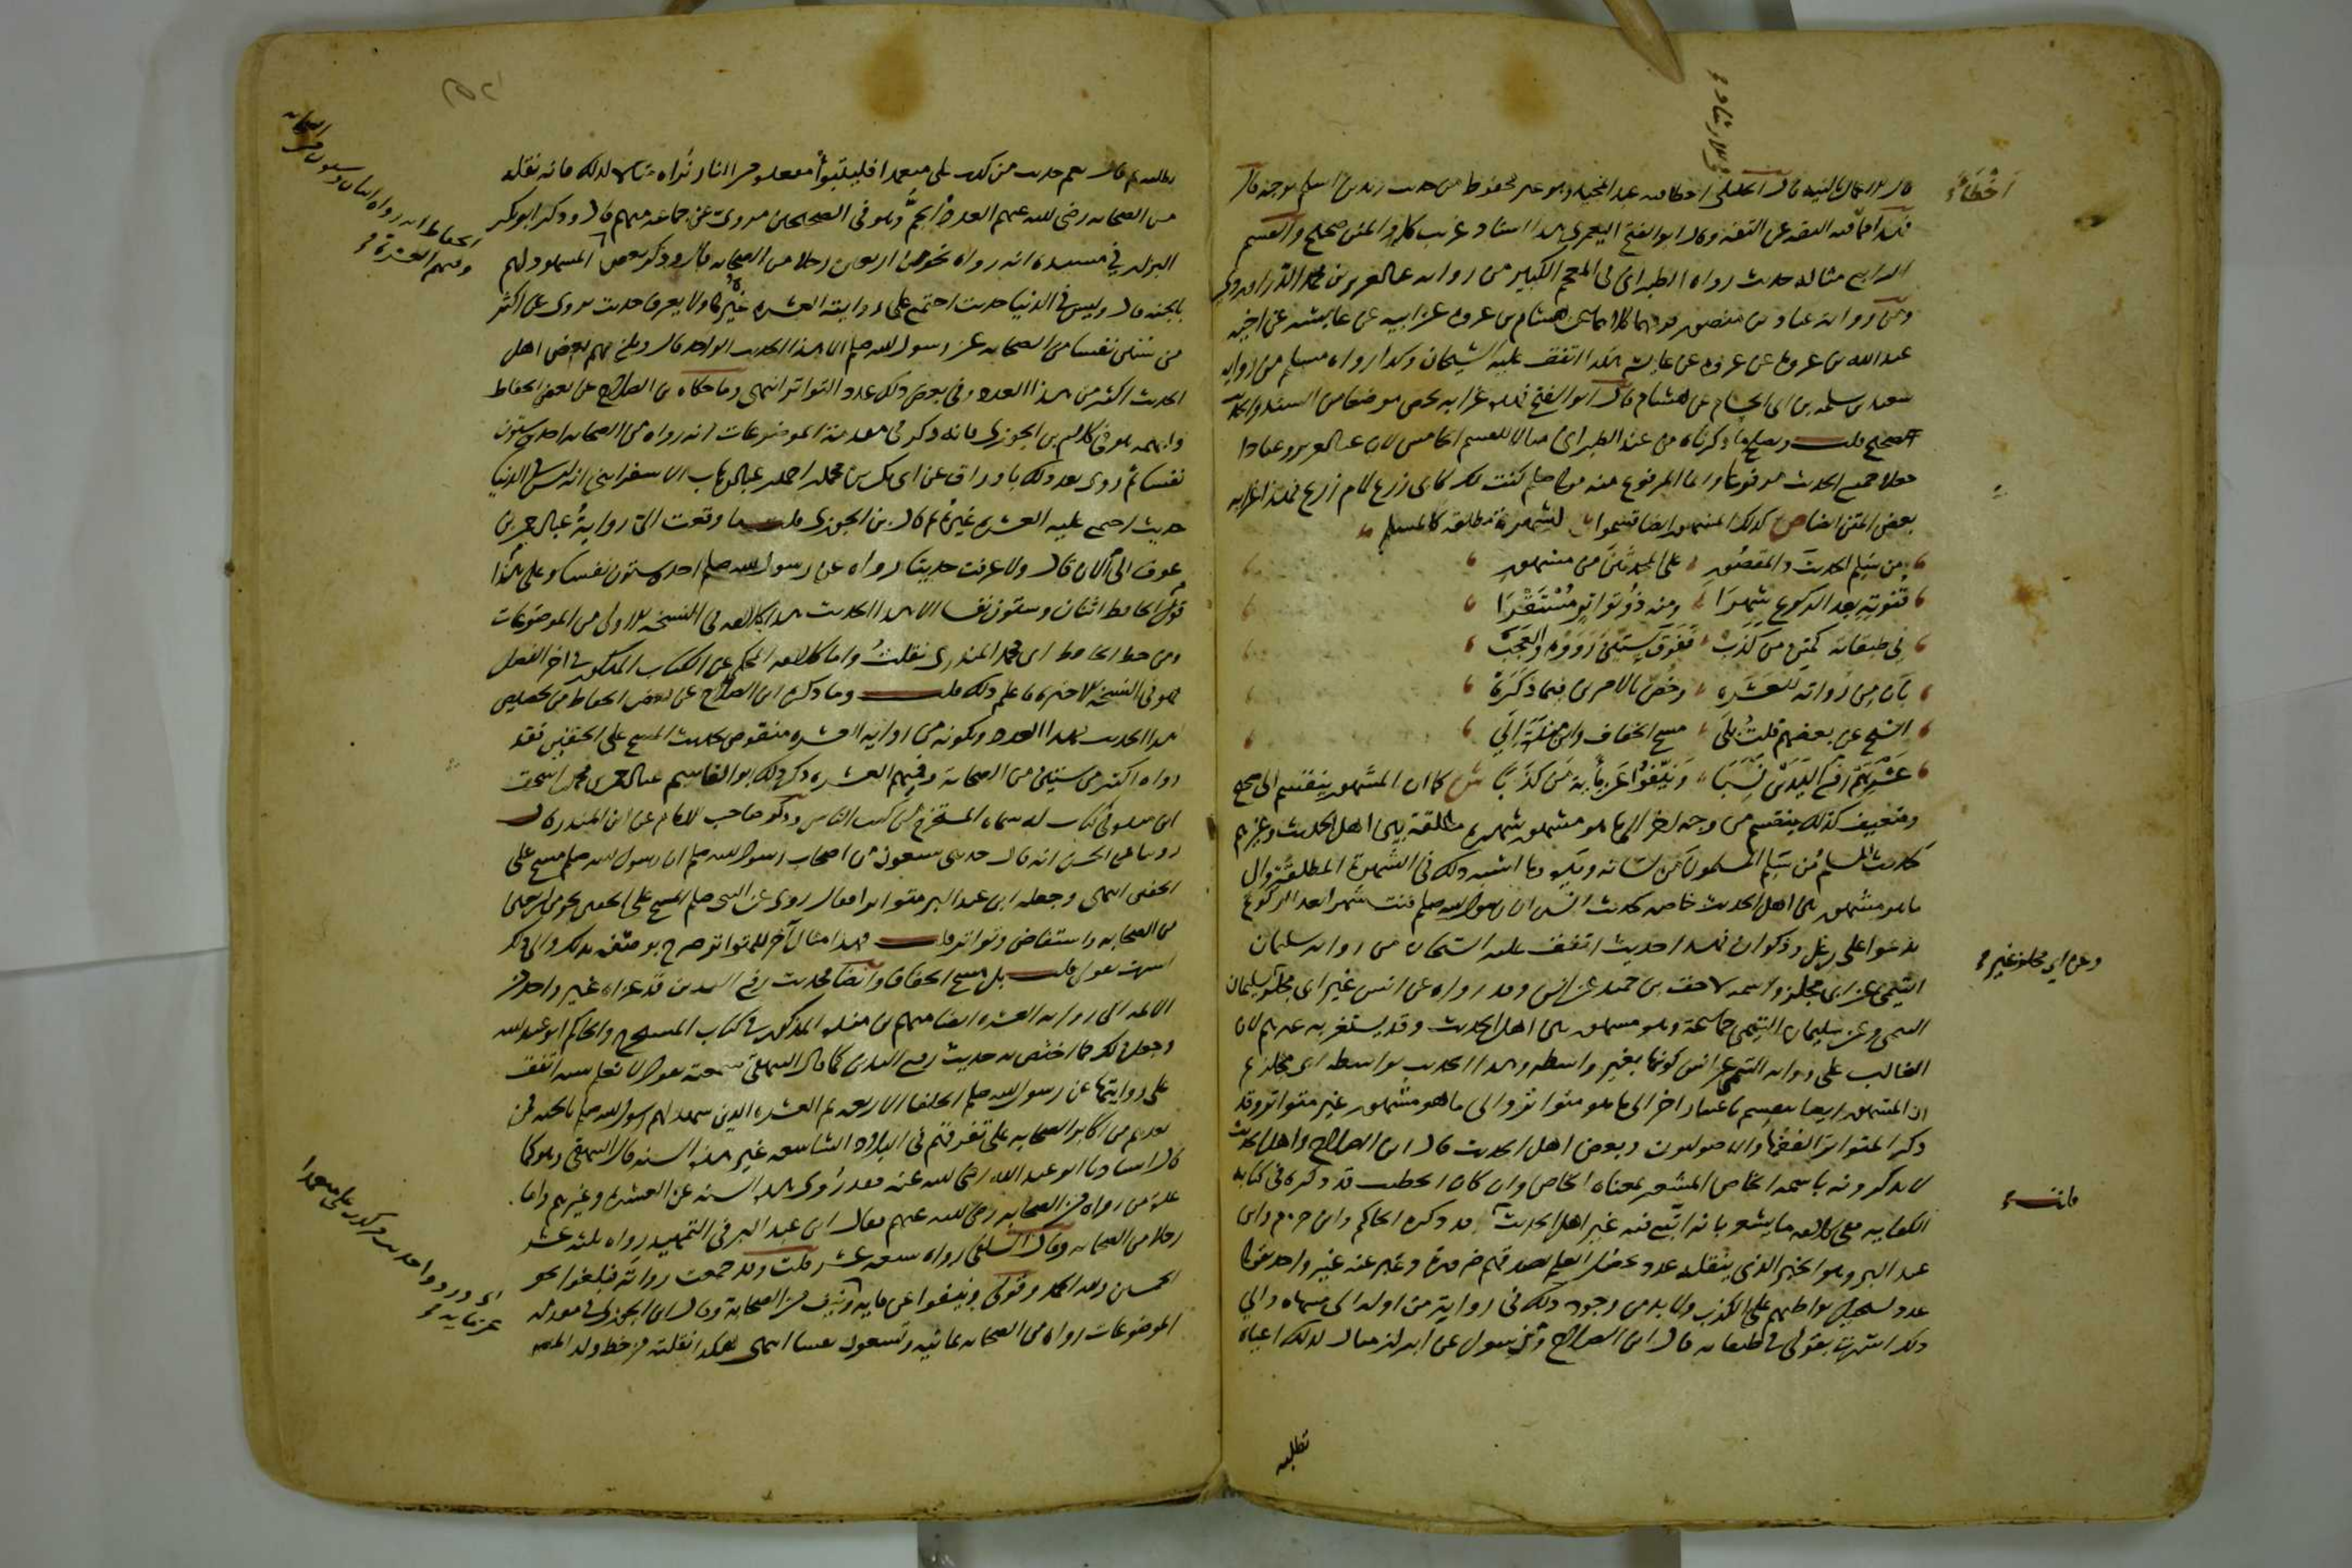 فيه الثقة عن الثقة وقال ابو الفتح اليعمري هذا اسناد غريب كله والمتن صحيح والقسم
الرابع مثاله حديث رواه الطبراني في المعجم الكبير من رواية عبد العزيز بن محمد الدراوردي
ومن رواية عباد بن منصور فرقهما كلاهما عن هشام بن عروة عن ابيه عن عايشة عن اخيه
عبد الله بن عروة عن عروة عن عايشة هكذا اتفق عليه الشيخان وكذا رواه مسلم من رواية
سعيد بن سلمة بن ابي الحسام عن هشام قال ابو الفتح فهذه غرابة تخص موضعا من السند والحديث
صحيح قلت ويصلح ما ذكرناه من عند الطبراني مثالا للقسم الخامس لان عبد العزيز وعبادا
جعلا جميع الحديث مرفوعا وانما المرفوع منه قوله صلم كنت لك كابي زرع لام زرع فهذا غرابة
بعض المتن ايضا ص كذلك المشهور ايضا قسموا لشهرة مطلقة كالمسلم
من سلم الحديث والمقصور على المحدثين من مشهور
قنوته بعد الركوع شهرا ومنه ذو تواتر مستقرا
في طبقاته كمتن من كذب ففوق ستين رووه والعجب
بان من رواته للعشره وخص بالامرين فيما ذكره
الشيخ عن بعضهم قلت بلى مسح الخفاف وابن مندة الى
عشرتهم رفع اليدين نسبا ونيفوا عن مأية من كذبا ش كما ان المشهور ينقسم الى صحيح
وضعيف كذلك ينقسم من وجه اخر الى ما هو مشهور شهرة مطلقة بين اهل الحديث وغيرهم
كحديث المسلم من سلم المسلمون من لسانه ويده وما اشبه ذلك في الشهرة المطلقة والى
ما هو مشهور بين اهل الحديث خاصة كحديث انس ان رسول الله صلم قنت شهرا بعد الركوع
يدعوا على رعل وذكوان فهذا حديث اتفق عليه الشيخان من رواية سليمان
التيمي عن ابي مجلز واسمه لاحق بن حميد عن انس وقد رواه عن انس غير ابي مجلز
التيمي وعن سليمان التيمي جماعة وهو مشهور بين اهل الحديث وقد يستغربه غيرهم لان
الغالب على رواية التيمي عن انس كونها بغير واسطة وهذا الحديث بواسطة ابي مجلز ثم
ان المشهور ايضا ينقسم باعتبار اخر الى ما هو متواتر والى ما هو مشهور غير متواتر وقد
ذكر المتواتر الفقها والاصوليون وبعض اهل الحديث قال ابن الصلاح واهل الحديث
لا يذكرونه باسمه الخاص المشعر بمعناه الخاص وان كان الخطيب قد ذكره في كتابه
الكفاية ففي كلامه ما يشعر بانه اتبع فيه غير اهل الحديث قلت قد ذكره الحاكم وابن حزم وابن
عبد البر وهو الخبر الذي ينقله عدد يحصل العلم بصدقهم ضرورة وعبر عنه غير واحد بقوله
عدد يستحيل تواطئهم على الكذب ولا بد من وجود ذلك في رواية من اوله الى منتهاه والى
ذلك اشرت بقولي في طبقاته قال ابن الصلاح ومن سيل عن ابراز مثال لذلك اعياه
تطلبه
اخطأ
وعن ابي مجلز غير
قلت
تطلبه قال نعم حديث من كذب علي متعمدا فليتبوأ مقعده من النار نراه مثالا لذلك فانه نقله
من الصحابة رضي الله عنهم العدد الجم وهو في الصحيحين مروي عن جماعة منهم قال وذكر ابو بكر
البزار في مسنده انه رواه نحو من اربعين رجلا من الصحابة قال وذكر بعض المشهود لهم
بالجنة قال وليس في الدنيا حديث اجتمع على روايته العشرة غيره ولا يعرف حديث يروى عن اكثر
من ستين نفسا من الصحابة عن رسول الله صلم الا هذا الحديث الواحد قال وبلغ بهم بعض اهل
الحديث اكثر من هذا العدد وفي بعض ذلك عدد التواتر انتهى وما حكاه بن الصلاح عن بعض الحفاظ
وابهمه هو في كلام بن الجوزي فانه ذكر في مقدمة الموضوعات انه رواه من الصحابة احد وستون
نفسا ثم روى بعد ذلك باوراق عن ابي بكر بن محمد بن احمد بن عبد الوهاب الاسفرايني انه ليس في الدنيا
حديث اجتمع عليه العشرة غيره ثم قال بن الجوزي قلت ما وقعت الى رواية عبد الرحمن بن
عوف الى الان قال ولا عرفت حديثا رواه عن رسول الله صلم احد وستون نفسا وعلى هذا
قول الحافظ اثنان وستون نفسا الا هذا الحديث هذا كلامه في النسخة الاولى من الموضوعات
ومن خط الحافظ ابي محمد المنذري نقلت واما كلامه المحكي عن الكتاب المذكور في اخر الفصل
فهو في النسخة الاخيرة فاعلم ذلك قلت وما ذكره ابن الصلاح عن بعض الحفاظ من تخصيص
هذا الحديث بهذا العدد وبكونه من رواية العشرة منقوض بحديث المسح على الخفين فقد
رواه اكثر من ستين من الصحابة وفيهم العشرة ذكر ذلك ابو القاسم عبد الرحمن بن محمد بن اسحق
ابن منده في كتاب له سماه المستخرج من كتب الناس وذكر صاحب الامام عن ابن المنذر قال
روينا عن الحسن انه قال حدثني سبعون من اصحاب رسول الله صلم ان رسول الله صلم مسح على
الخفين انتهى وجعله ابن عبد البر متواترا فقال روى عن النبي صلم المسح على الخفين نحو من اربعين
من الصحابة واستفاض وتواتر قلت فهذا مثال آخر للمتواتر صرح بوصفه بذلك والى ذلك
اشرت بقولي قلت بلى مسح الخفاف وايضا فحديث رفع اليدين قد عزاه غير واحد من
الائمة الى رواية العشرة ايضا منهم بن منده المذكور في كتاب المستخرج والحاكم ابو عبد الله
وجعل ذلك مما اختص به حديث رفع اليدين كما قال البيهقي سمعته يقول لا نعلم سنة اتفق
على روايتها عن رسول الله صلم الخلفا الاربعة ثم العشرة الذين شهد لهم رسول الله صلم بالجنة فمن
بعدهم من اكابر الصحابة على تفرقهم في البلاد الشاسعة غير هذه السنة قال البيهقي وهو كما
قال استاذنا ابو عبد الله رضي الله عنه فقد روى هذه السنة عن العشرة وغيرهم واما
عدة من رواه من الصحابة رضي الله عنهم فقال ابن عبد البر في التمهيد رواه ثلثة عشر
رجلا من الصحابة وقال السلفي رواه سبعة عشر قلت وقد جمعت رواته فبلغوا نحو
الخمسين ولله الحمد وقولي ونيفوا عن ماية وقال ابن الجوزي في مقدمة
الموضوعات رواه من الصحابة ثمانية وتسعون نفسا انتهى هكذا نقلته من خط ولد المص